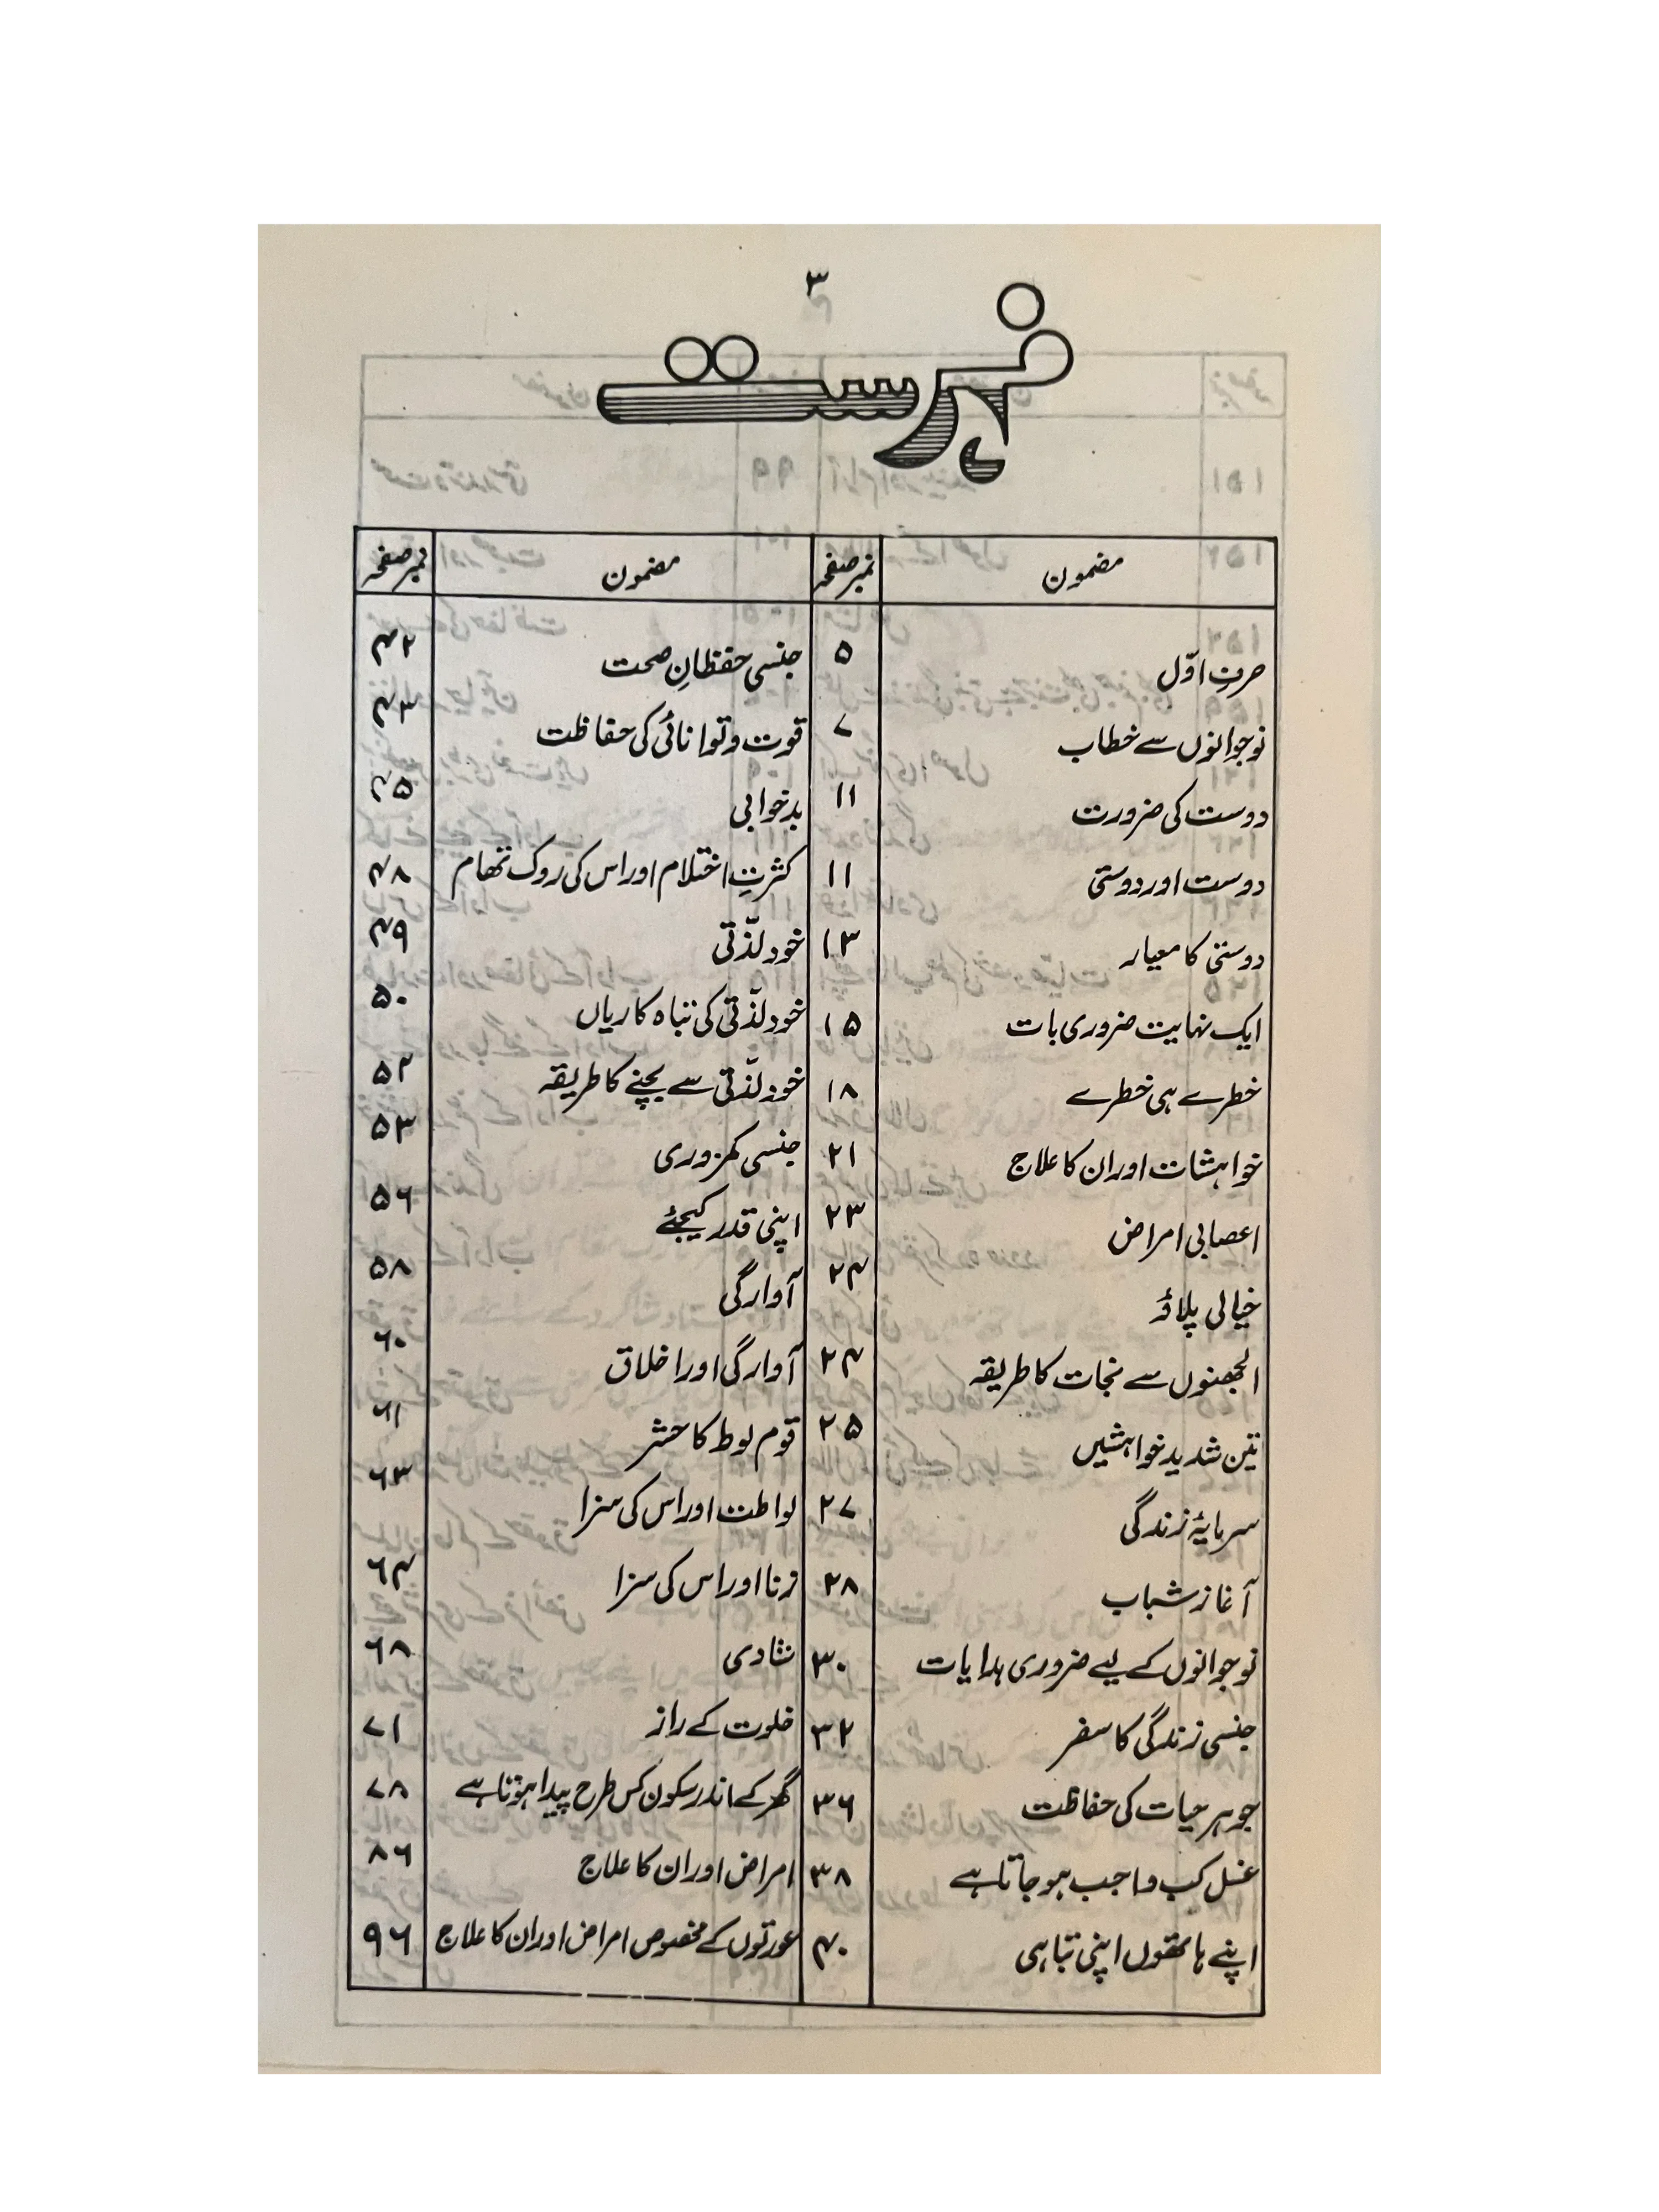 ۳
فہرست
مضمون نمبر صفحہ
حرفِ اوّل ۵
نوجوانوں سے خطاب ۷
دوست کی ضرورت ۱۱
دوست اور دوستی ۱۱
دوستی کا معیار ۱۳
ایک نہایت ضروری بات ۱۵
خطرے ہی خطرے ۱۸
خواہشات اور ان کا علاج ۲۱
اعصابی امراض ۲۳
خیالی پلاؤ ۲۴
الجھنوں سے نجات کا طریقہ ۲۴
تین شدید خواہشیں ۲۵
سرمایۂ زندگی ۲۷
آغاز شباب ۲۸
نوجوانوں کے لیے ضروری ہدایات ۳۰
جنسی زندگی کا سفر ۳۲
جوہر حیات کی حفاظت ۳۶
غسل کب واجب ہو جاتا ہے ۳۸
اپنے ہاتھوں اپنی تباہی ۴۰
مضمون نمبر صفحہ
جنسی حفظانِ صحت ۴۲
قوت و توانائی کی حفاظت ۴۳
بدخوابی ۴۵
کثرتِ احتلام اور اس کی روک تھام ۴۸
خود لذّتی ۴۹
خود لذّتی کی تباہ کاریاں ۵۰
خود لذّتی سے بچنے کا طریقہ ۵۲
جنسی کمزوری ۵۳
اپنی قدر کیجئے ۵۶
آوارگی ۵۸
آوارگی اور اخلاق ۶۰
قوم لوط کا حشر ۶۱
لواطت اور اس کی سزا ۶۳
زنا اور اس کی سزا ۶۴
شادی ۶۸
خلوت کے راز ۷۱
گھر کے اندر سکون کس طرح پیدا ہوتا ہے ۷۸
امراض اور ان کا علاج ۸۶
عورتوں کے مخصوص امراض اور ان کا علاج ۹۶